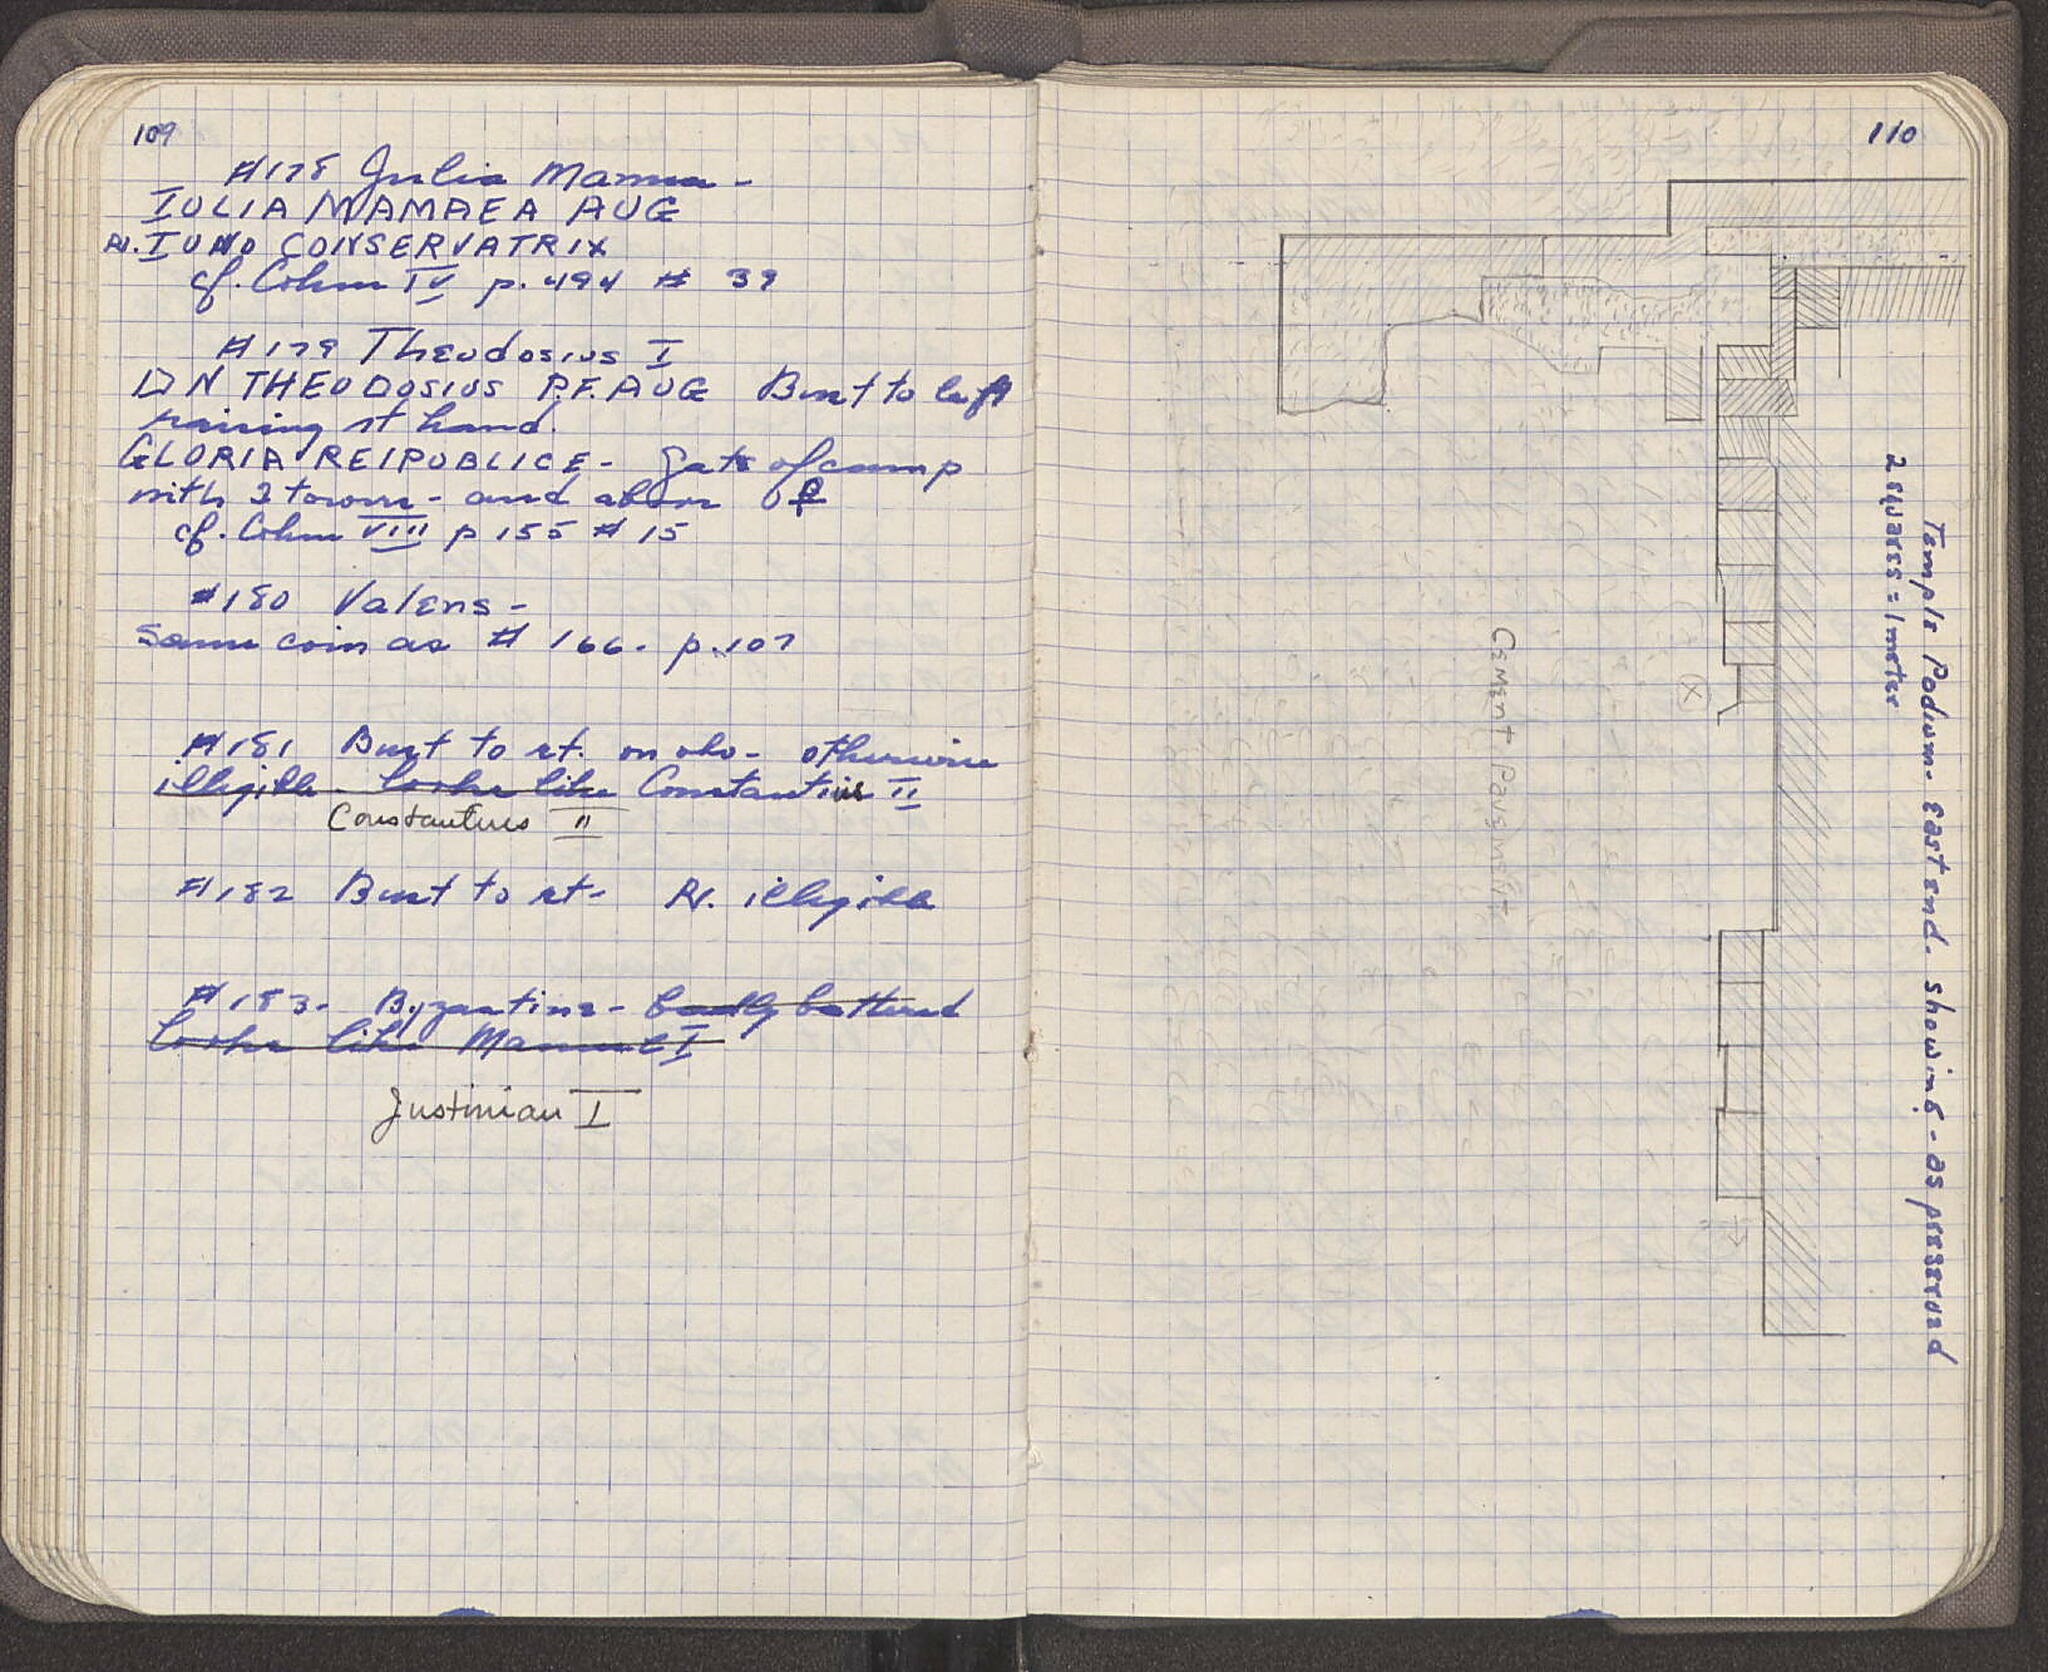 109
#178 Julia Mamaea -
IULIA MAMAEA AUG
Rv. IUNO CONSERVATRIX
cf. Cohen IV p. 494 # 39
#179 Theodosius I
DN THEODOSIUS P.F. AUG Bust to left
raising rt hand.
GLORIA REIPUBLICE - gate of camp
with 2 towers - and above
cf. Cohen VIII p 155 # 15
#180 Valens -
Same coin as # 166. p. 107
#181 Bust to rt. on obv - otherwise
illegible. looks like Constantius II
Constantius II
#182 Bust to rt - Rv. illegible
#183 - Byzantine - badly battered
looks like Manuel I
Justinian I
110
Temple Podium - East end. showing - as preserved
2 squares = 1 meter
Cement Pavement
X